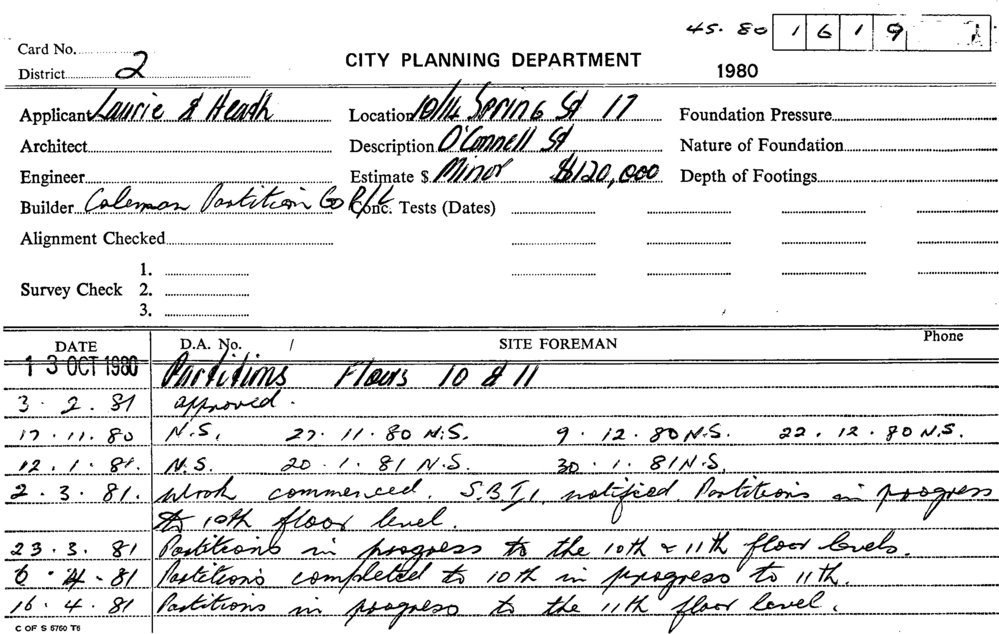 45. 80 1619
Card No.
District 2
CITY PLANNING DEPARTMENT
1980
Applicant Laurie & Heath Location 10/14 Spring St 17 Foundation Pressure
Architect Description O'Connell St Nature of Foundation
Engineer Estimate $ Minor $120,000 Depth of Footings
Builder Coleman Partition Co P/L Conc. Tests (Dates)
Alignment Checked
1.
Survey Check 2.
3.
DATE D.A. No. / SITE FOREMAN Phone
13 OCT 1980 Partitions Floors 10 & 11
3. 2. 81 approved.
17. 11. 80 N.S. 27. 11. 80 N.S. 9. 12. 80 N.S. 22. 12. 80 N.S.
12. 1. 81. N.S. 20. 1. 81 N.S. 30. 1. 81 N.S.
2. 3. 81. Work commenced. S.B.I. notified. Partitions in progress
to 10th floor level.
23. 3. 81 Partitions in progress to the 10th & 11th floor levels.
6. 4. 81 Partitions completed to 10th in progress to 11th.
16. 4. 81 Partitions in progress to the 11th floor level.
C OF S 5760 T6